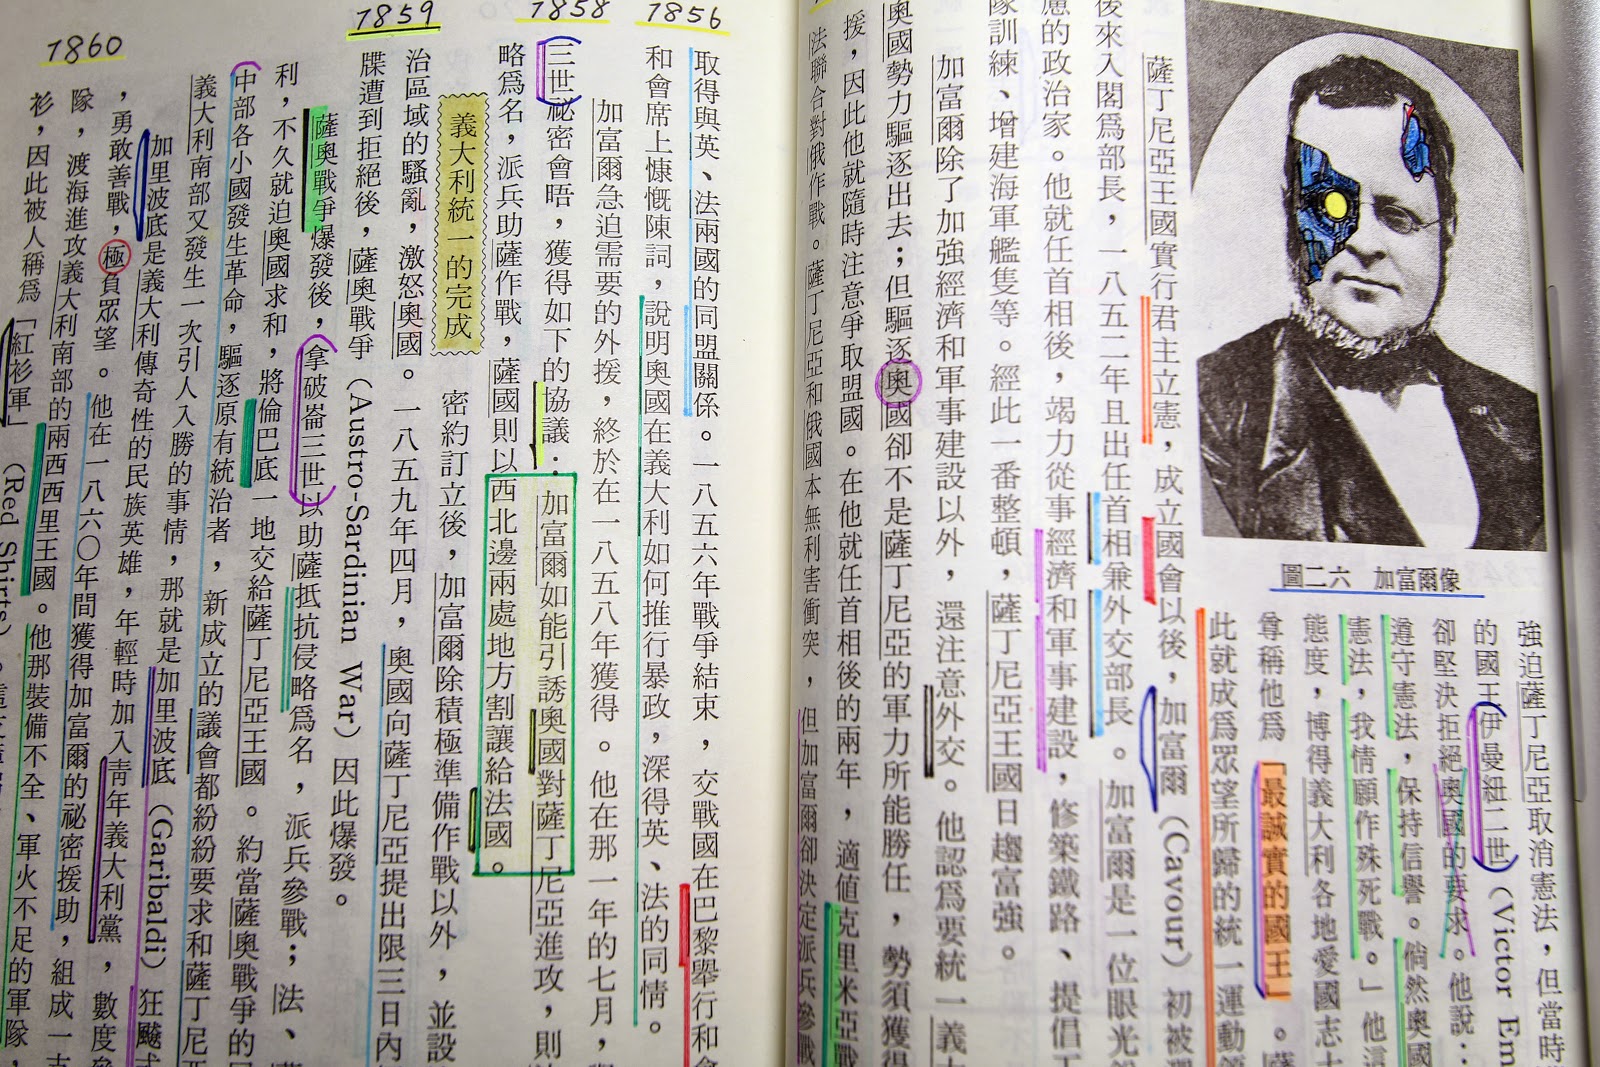 強迫薩丁尼亞取消憲法，但當時
的國王伊曼紐二世（Victor Em
卻堅決拒絕奧國的要求。他說：
遵守憲法，保持信譽。倘然奧國
憲法，我情願作殊死戰。」他這
態度，博得義大利各地愛國志士
尊稱他爲「最誠實的國王」。薩
此就成爲眾望所歸的統一運動領
圖二六　加富爾像
薩丁尼亞王國實行君主立憲，成立國會以後，加富爾（Cavour）初被選
後來入閣爲部長，一八五二年且出任首相兼外交部長。加富爾是一位眼光
慮的政治家。他就任首相後，竭力從事經濟和軍事建設，修築鐵路、提倡工
隊訓練、增建海軍艦隻等。經此一番整頓，薩丁尼亞王國日趨富強。
加富爾除了加強經濟和軍事建設以外，還注意外交。他認爲要統一義大
奧國勢力驅逐出去；但驅逐奧國卻不是薩丁尼亞的軍力所能勝任，勢須獲得
援，因此他就隨時注意爭取盟國。在他就任首相後的兩年，適値克里米亞戰
法聯合對俄作戰。薩丁尼亞和俄國本無利害衝突，但加富爾卻決定派兵參戰
1856
1858
1859
1860
取得與英、法兩國的同盟關係。一八五六年戰爭結束，交戰國在巴黎舉行和會
和會席上慷慨陳詞，說明奧國在義大利如何推行暴政，深得英、法的同情。
加富爾急迫需要的外援，終於在一八五八年獲得。他在那一年的七月，與
三世祕密會晤，獲得如下的協議：加富爾如能引誘奧國對薩丁尼亞進攻，則
略爲名，派兵助薩作戰，薩國則以西北邊兩處地方割讓給法國。
義大利統一的完成
密約訂立後，加富爾除積極準備作戰以外，並設
治區域的騷亂，激怒奧國。一八五九年四月，奧國向薩丁尼亞提出限三日內
牒遭到拒絕後，薩奧戰爭（Austro-Sardinian War）因此爆發。
薩奧戰爭爆發後，拿破崙三世以助薩抵抗侵略爲名，派兵參戰；法、薩
利，不久就迫奧國求和，將倫巴底一地交給薩丁尼亞王國。約當薩奧戰爭的
中部各小國發生革命，驅逐原有統治者，新成立的議會都紛紛要求和薩丁尼亞
義大利南部又發生一次引人入勝的事情，那就是加里波底（Garibaldi）狂飈式
加里波底是義大利傳奇性的民族英雄，年輕時加入青年義大利黨，數度參
，勇敢善戰，極負眾望。他在一八六〇年間獲得加富爾的祕密援助，組成一支
隊，渡海進攻義大利南部的兩西西里王國。他那裝備不全、軍火不足的軍隊，
衫，因此被人稱爲「紅衫軍」（Red Shirts）。這支